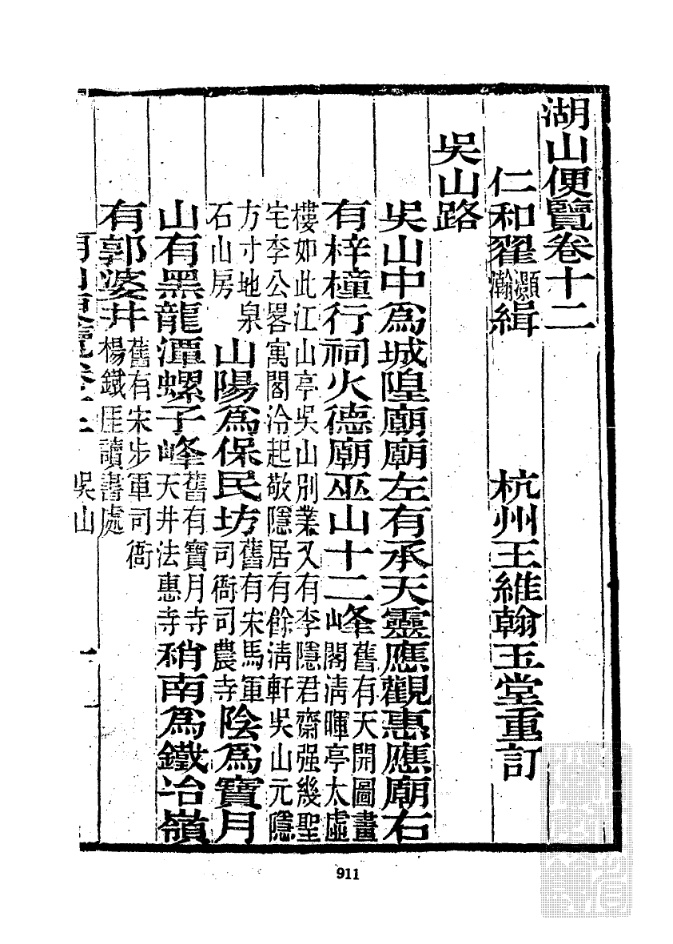 湖山便覽卷十二
仁和翟灝瀚緝 杭州王維翰玉堂重訂
吳山路
吳山中爲城隍廟廟左有承天靈應觀惠應廟右
有梓橦行祠火德廟巫山十二峰舊有天開圖畫閣淸暉亭太虛
樓如此江山亭吳山別業又有李隱君齋强幾聖
宅李公畧寓閣洽起敬隱居有餘淸軒吳山元隱
方寸地泉石山房 山陽爲保民坊舊有宋馬軍司衙司農寺陰爲寶月
山有黑龍潭螺子峰舊有寶月寺天井法惠寺稍南爲鐵冶嶺
有郭婆井舊有宋步軍司衙楊鐵厓讀書處
吳山 一
911